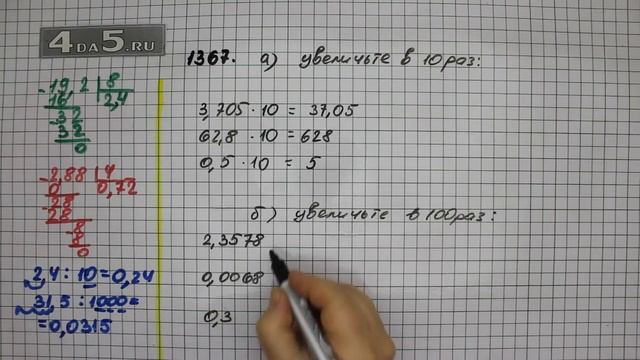 4DA5.RU
1367. а) увеличьте в 10 раз:
3,705 · 10 = 37,05
62,8 · 10 = 628
0,5 · 10 = 5
б) увеличьте в 100 раз:
2,3578
0,0068
0,3
19,2 | 8
16 | 2,4
32
32
0
2,88 | 4
0 | 0,72
28
28
8
8
0
2,4 : 10 = 0,24
31,5 : 1000 =
= 0,0315